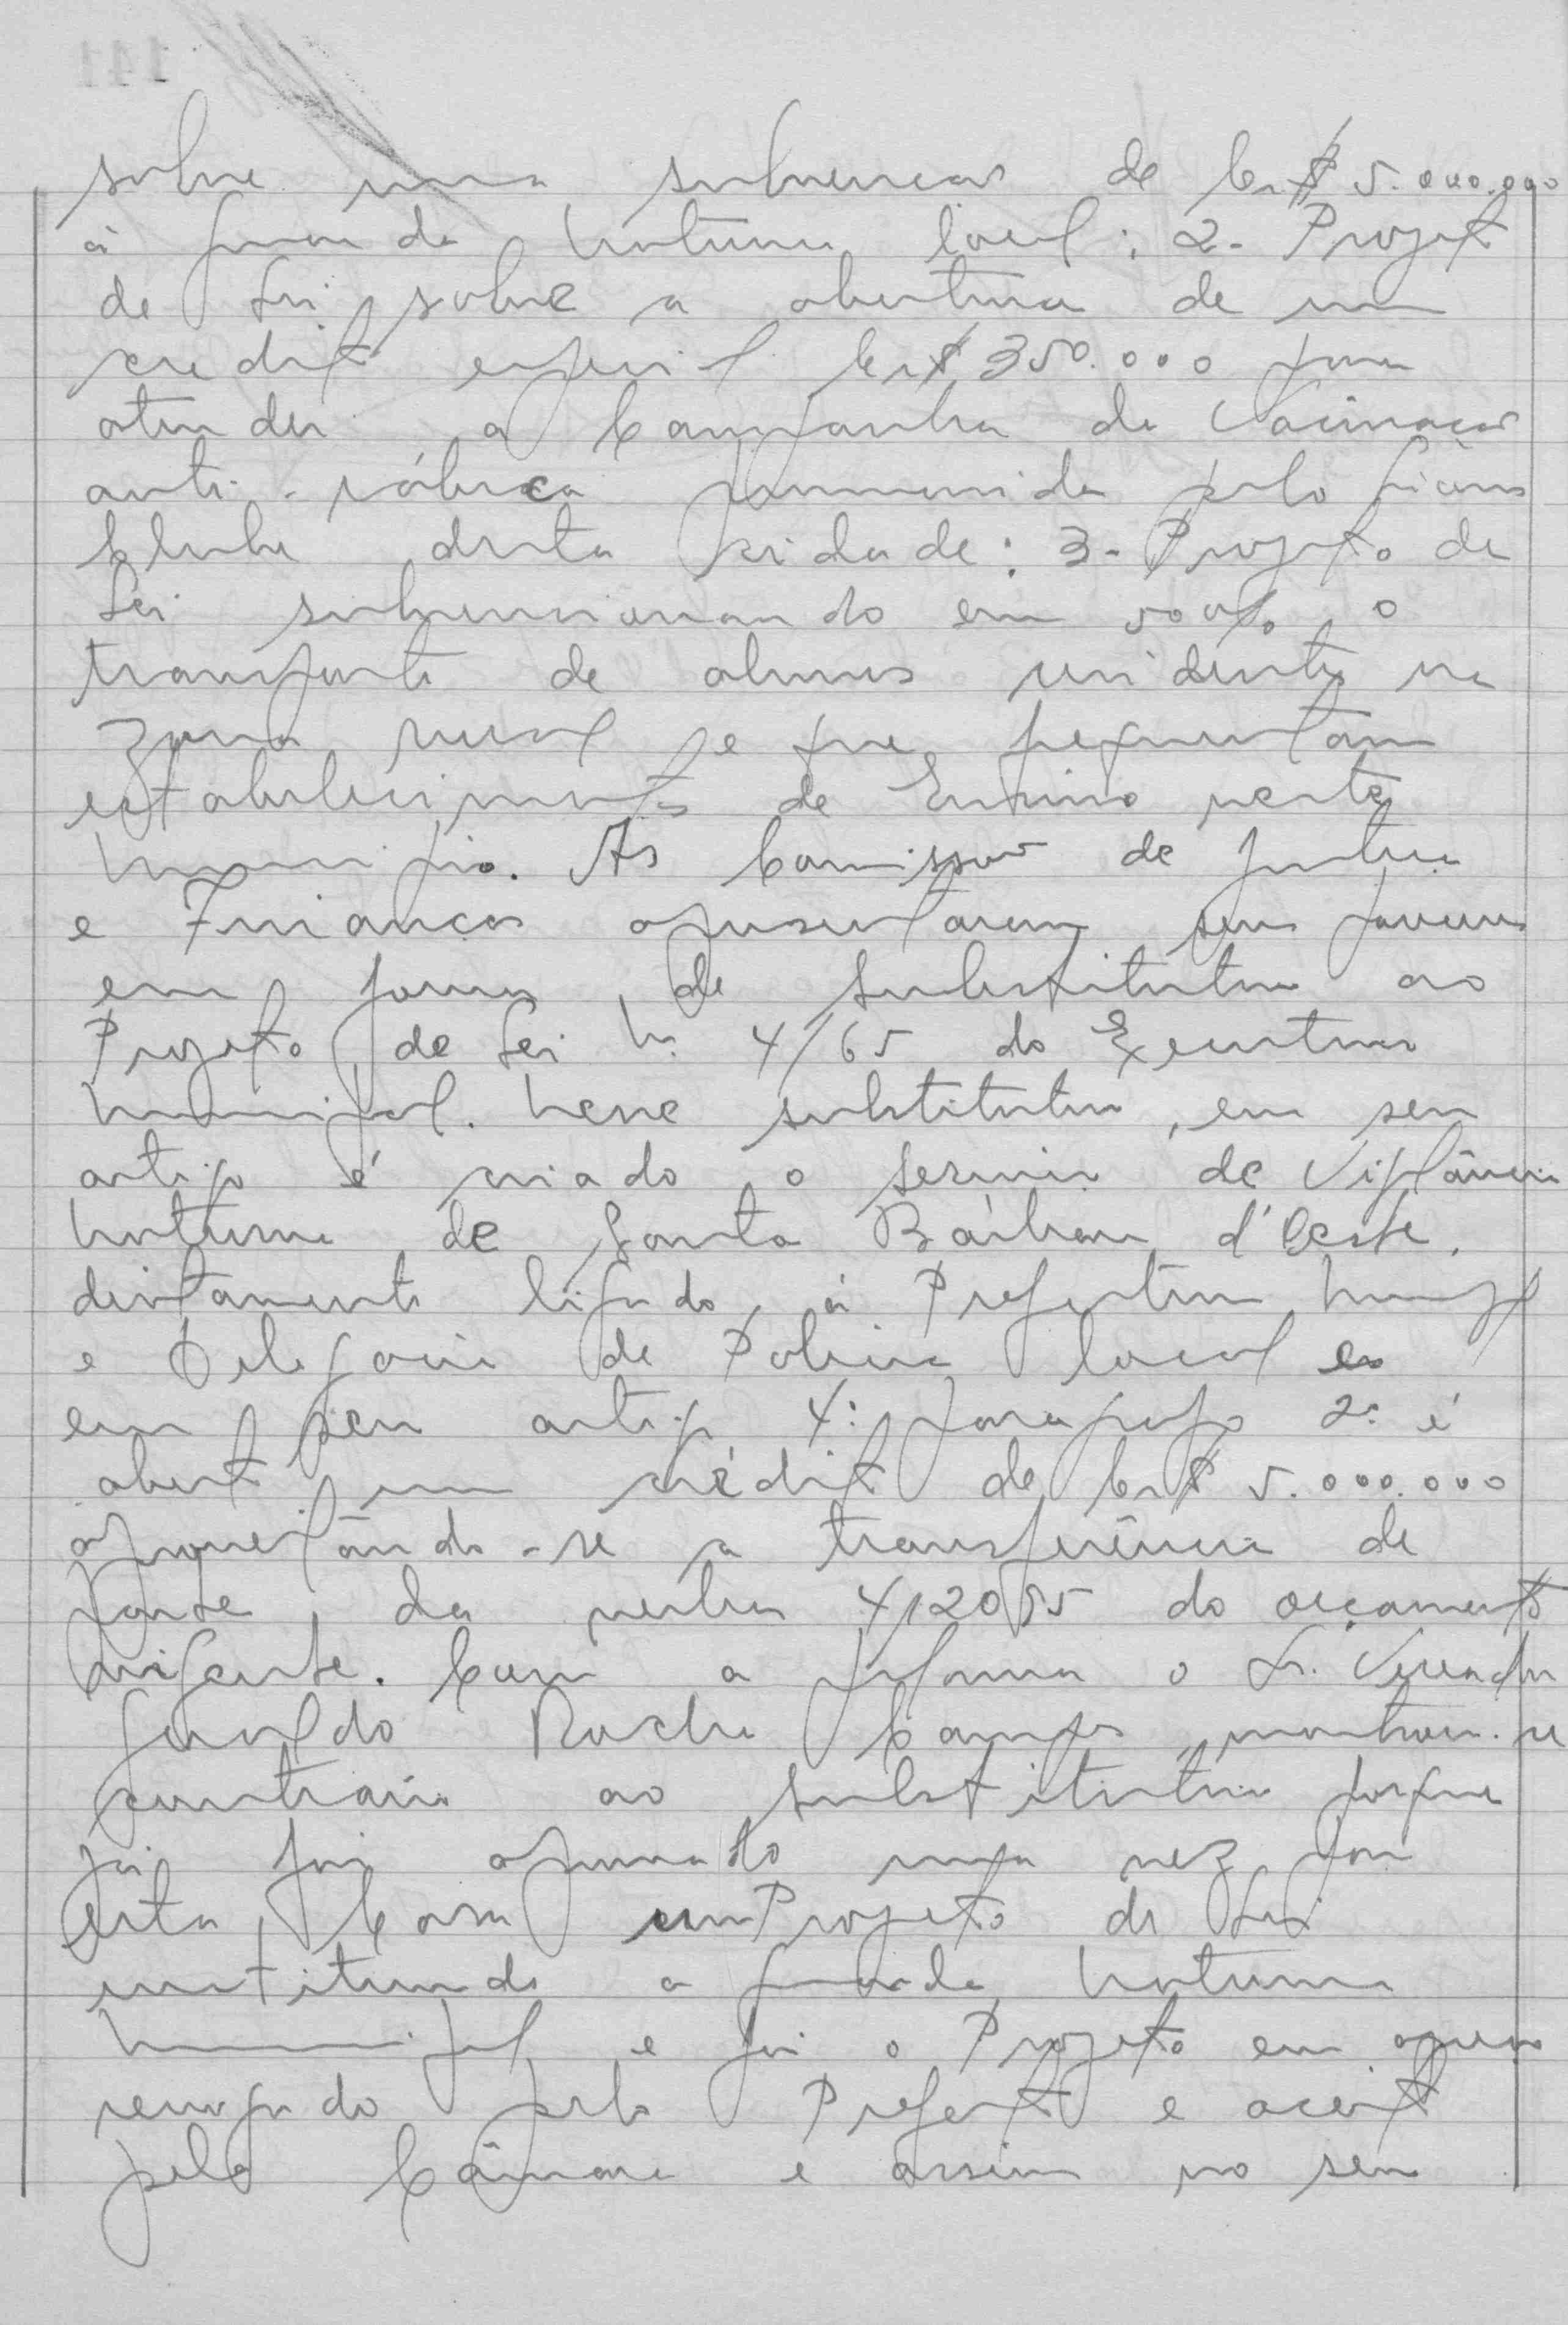 sobre uma subvenção de Cr$ 5.000.000
à guarda Noturna local; 2- Projeto
de Lei sobre a abertura de um
credito especial Cr$ 350.000 para
atender a Campanha de Vacinação
anti-rábica promovida pelo Lions
Clube desta cidade; 3- Projeto de
Lei subvencionando em 50% o
transporte de alunos residentes na
zona rural e que frequentam
estabelecimentos de Ensino neste
Município. As Comissões de Justiça
e Finanças apresentaram seus pareceres
em forma de substitutivo ao
Projeto de Lei N. 4/65 do Executivo
Municipal. Nesse substitutivo, em seu
artigo é criado o serviço de Vigilância
Noturna de Santa Bárbara d'Oeste,
diretamente ligado à Prefeitura Municipal
e Delegacia de Policia local e
em seu artigo 4º paragrafo 2º é
aberto um crédito de Cr$ 5.000.000
aproveitando-se a transferência de
parte da verba 412085 do orçamento
vigente. Com a palavra o Sr. Vereador
Geraldo Rocha Campos mostrou-se
contrário ao substitutivo porque
já foi aprovado uma vez por
esta Casa um Projeto de Lei
instituindo a guarda Noturna
Municipal e foi o Projeto em apreço
revogado pelo Prefeito e aceito
pela Câmara e assim no seu